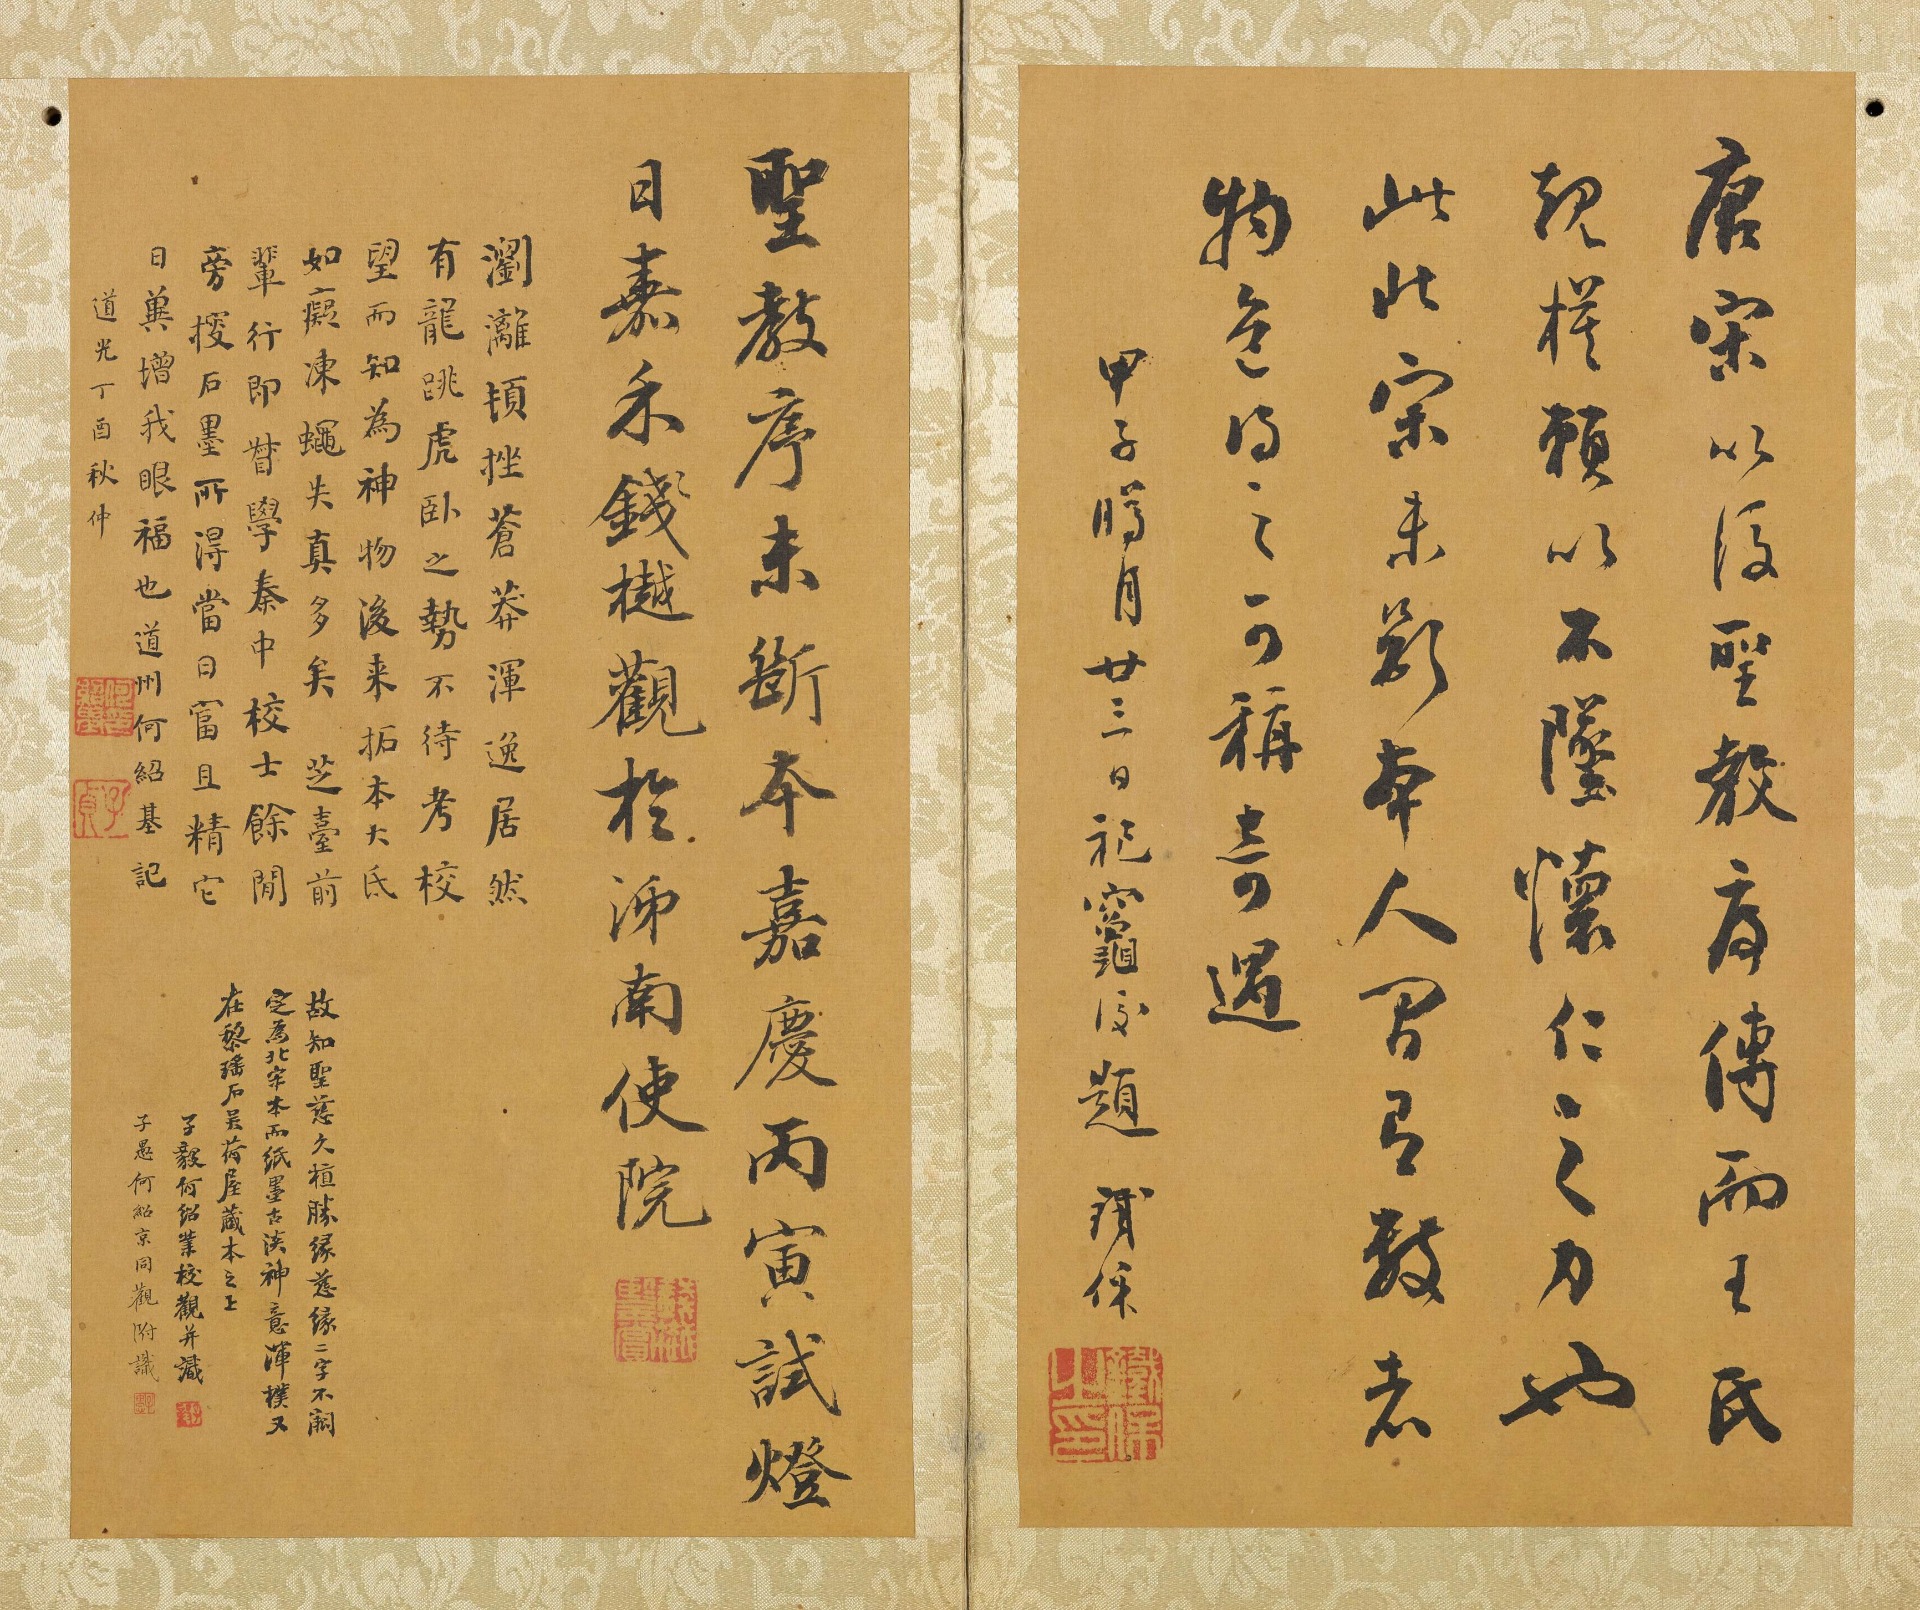 唐宋以後聖教序傳而王氏
規模賴以不墜懷仁之力也
此北宋未斷本人間有數者
物色得之可稱奇遇
甲子臘月廿三日祀竈後題 鐵保
鐵保之印
聖教序未斷本嘉慶丙寅試燈
日嘉禾錢樾觀於沛南使院
瀏灕頓挫蒼莽渾逸居然
有龍跳虎卧之勢不待考校
望而知為神物後来拓本大氐
如癡凍蠅失真多矣 芝臺前
輩行即督學秦中校士餘閒
旁搜石墨所得當日富且精它
日冀增我眼福也道州何紹基記
道光丁酉秋仲
子貞
故知聖慈久植勝緣慈緣二字不闕
定為北宋本而紙墨古淡神意渾樸又
在黎瑤石吳荷屋藏本之上
子毅何紹業校觀并識
子愚何紹京同觀附識